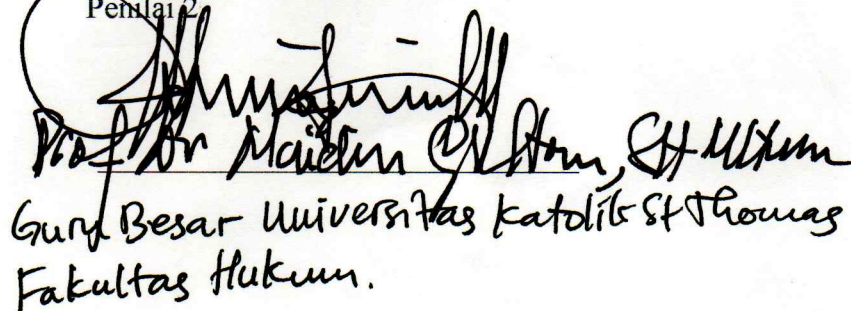 Penilai 2
Prof Dr Maidin Gultom, SH MHum
Guru Besar Universitas Katolik St Thomas
Fakultas Hukum.